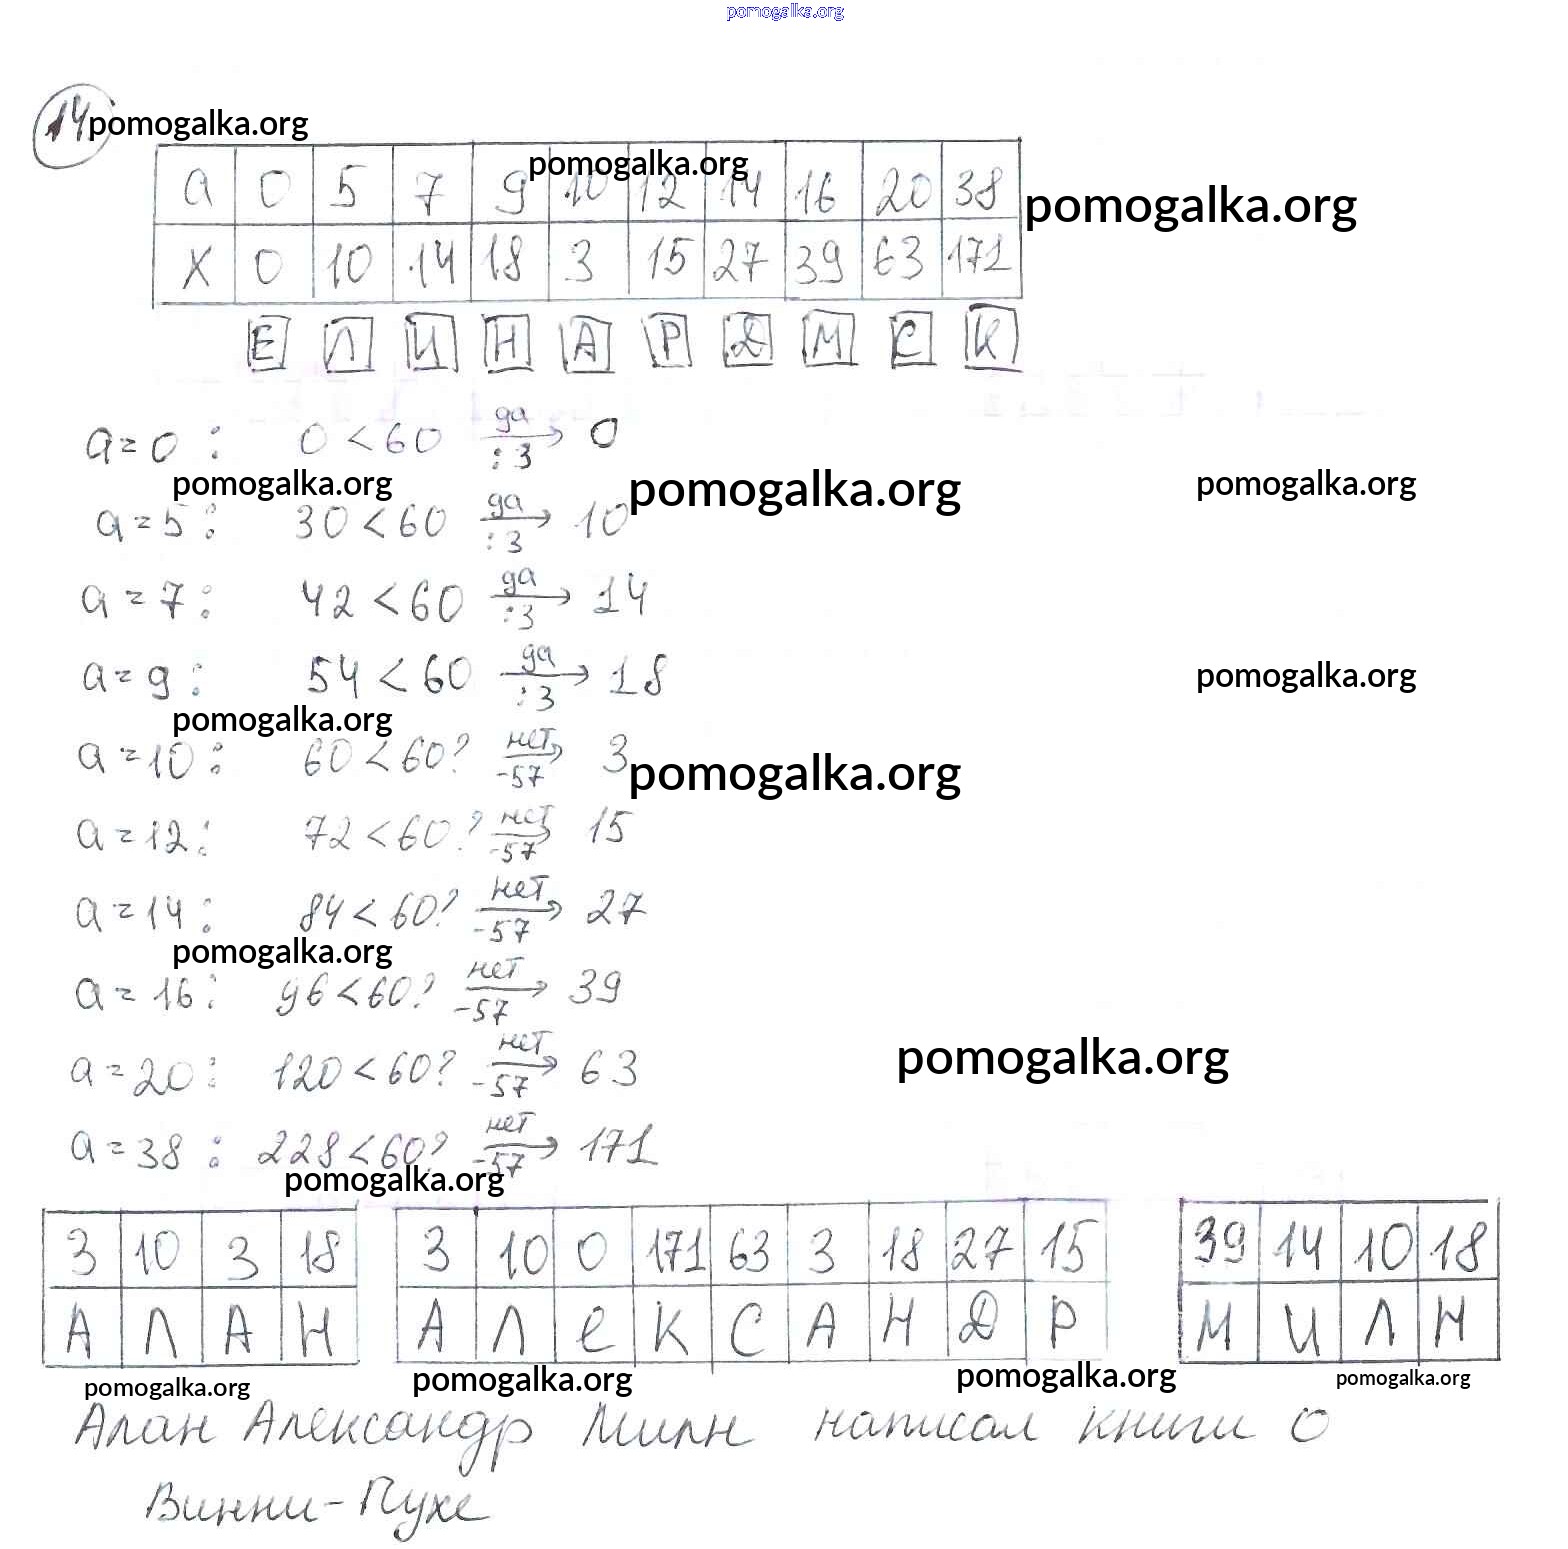 pomogalka.org
14 pomogalka.org
pomogalka.org
а 0 5 7 9 10 12 14 16 20 38
pomogalka.org
х 0 10 14 18 3 15 27 39 63 171
Е Л И Н А Р Д М С К
а = 0 : 0 < 60 да :3 → 0
pomogalka.org pomogalka.org pomogalka.org
а = 5 : 30 < 60 да :3 → 10
а = 7 : 42 < 60 да :3 → 14
а = 9 : 54 < 60 да :3 → 18
pomogalka.org
pomogalka.org
а = 10 : 60 < 60? нет -57 → 3
pomogalka.org
а = 12 : 72 < 60? нет -57 → 15
а = 14 : 84 < 60? нет -57 → 27
pomogalka.org
а = 16 : 96 < 60? нет -57 → 39
а = 20 : 120 < 60? нет -57 → 63
pomogalka.org
а = 38 : 228 < 60? нет -57 → 171
pomogalka.org
3 10 3 18 3 10 0 171 63 3 18 27 15 39 14 10 18
А Л А Н А Л е К С А Н Д Р М И Л Н
pomogalka.org pomogalka.org pomogalka.org pomogalka.org
Алан Александр Милн написал книги о
Винни-Пухе